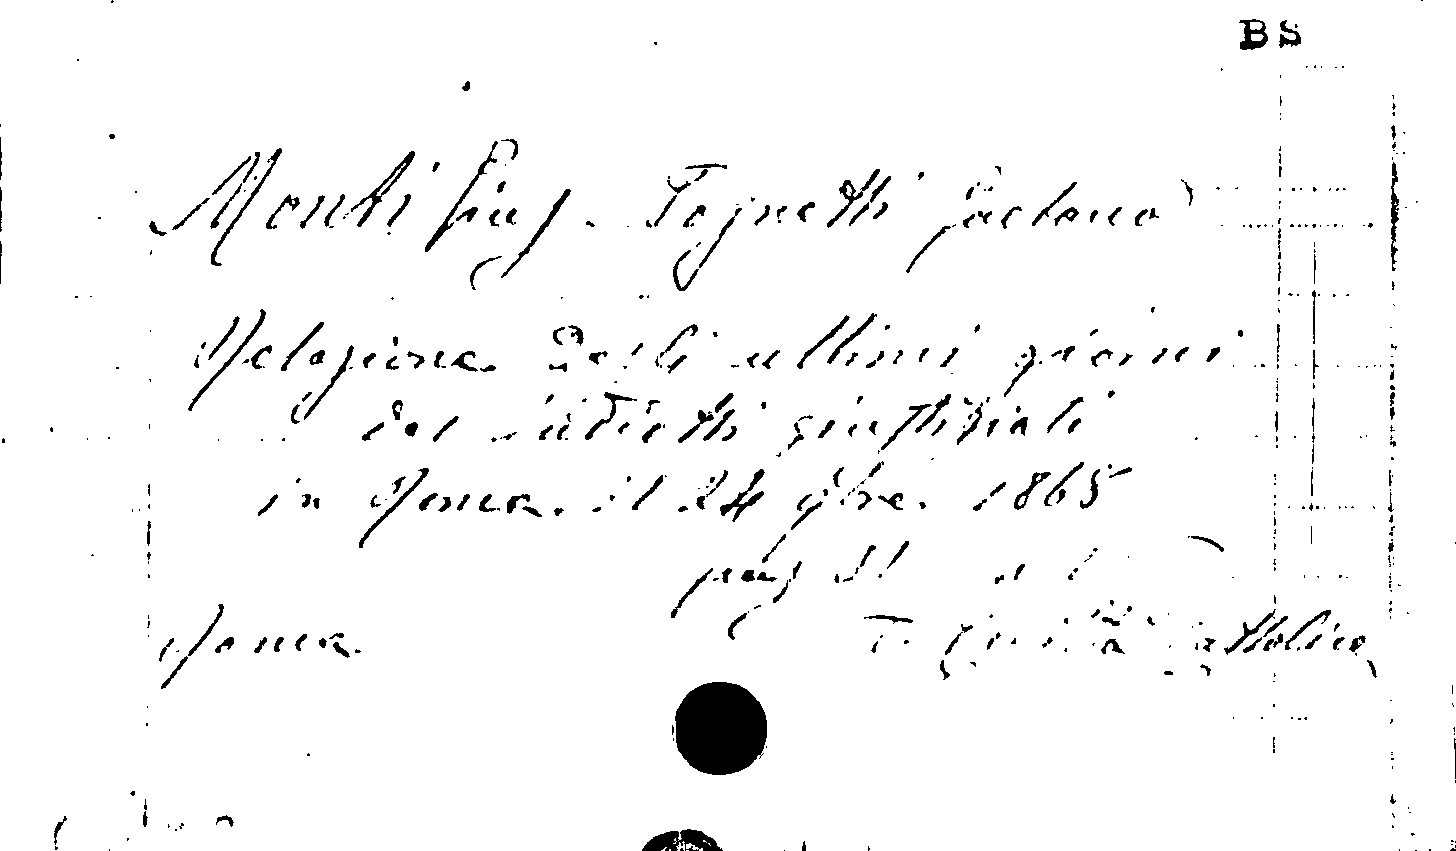 BS
Monti Gius. Tognetti Gaetano
Relazione degli ultimi giorni
dei suddetti giustiziati
in Roma il 24 9bre. 1865
pag 31
Roma. T. Civiltà Cattolica